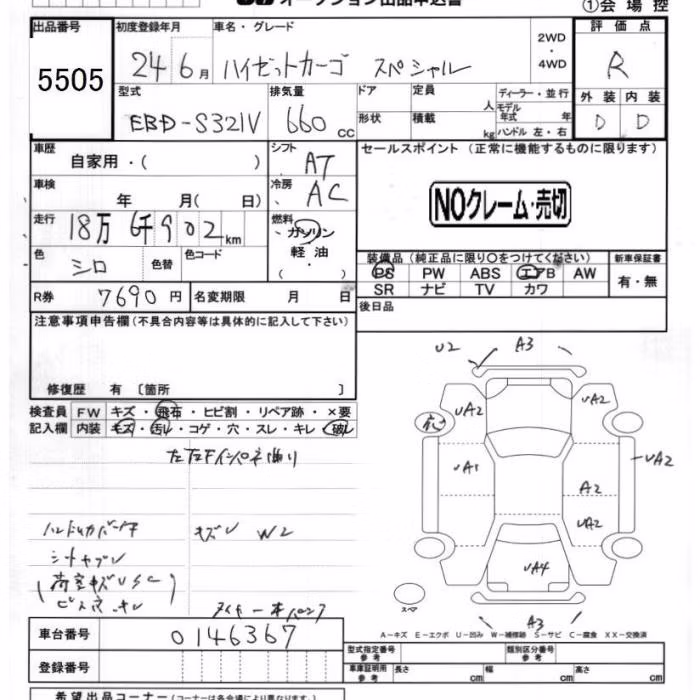 オークション出品申込書
①会場控
出品番号 5505
初度登録年月 24 6月
車名・グレード ハイゼットカーゴ スペシャル
2WD・4WD
評価点 R
外装 D 内装 D
型式 EBD-S321V
排気量 660 CC
ドア 形状
定員 人 積載 kg
ディーラー・並行
モデル年式 年
ハンドル 左・右
車歴 自家用・( )
シフト AT
セールスポイント (正常に機能するものに限ります)
車検 年 月( 日)
冷房 AC
NOクレーム・売切
走行 18万 6千902km
燃料 ガソリン・軽油・( )
色 シロ 色替 色コード
装備品 (純正品に限り〇をつけてください)
新車保証書 有・無
PS PW ABS エアB AW
SR ナビ TV カワ
R券 7690円 名変期限 月 日
後日品
注意事項申告欄 (不具合内容等は具体的に記入して下さい)
修復歴 有 〔箇所 〕
U2 A3
検査員記入欄
FW キズ・飛石・ヒビ割・リペア跡・×要
内装 キズ・汚レ・コゲ・穴・スレ・キレ・破レ
UA2 UA2
UA1 UA2
A2
UA2
キズU W2
UA4
スペア
A3
A-キズ E-エクボ U-凹み W-補修跡 S-サビ C-腐食 XX-交換済
車台番号 0146367
登録番号
型式指定番号 参考
類別区分番号 参考
車庫証明用 参考 長さ cm 幅 cm 高さ cm
希望出品コーナー